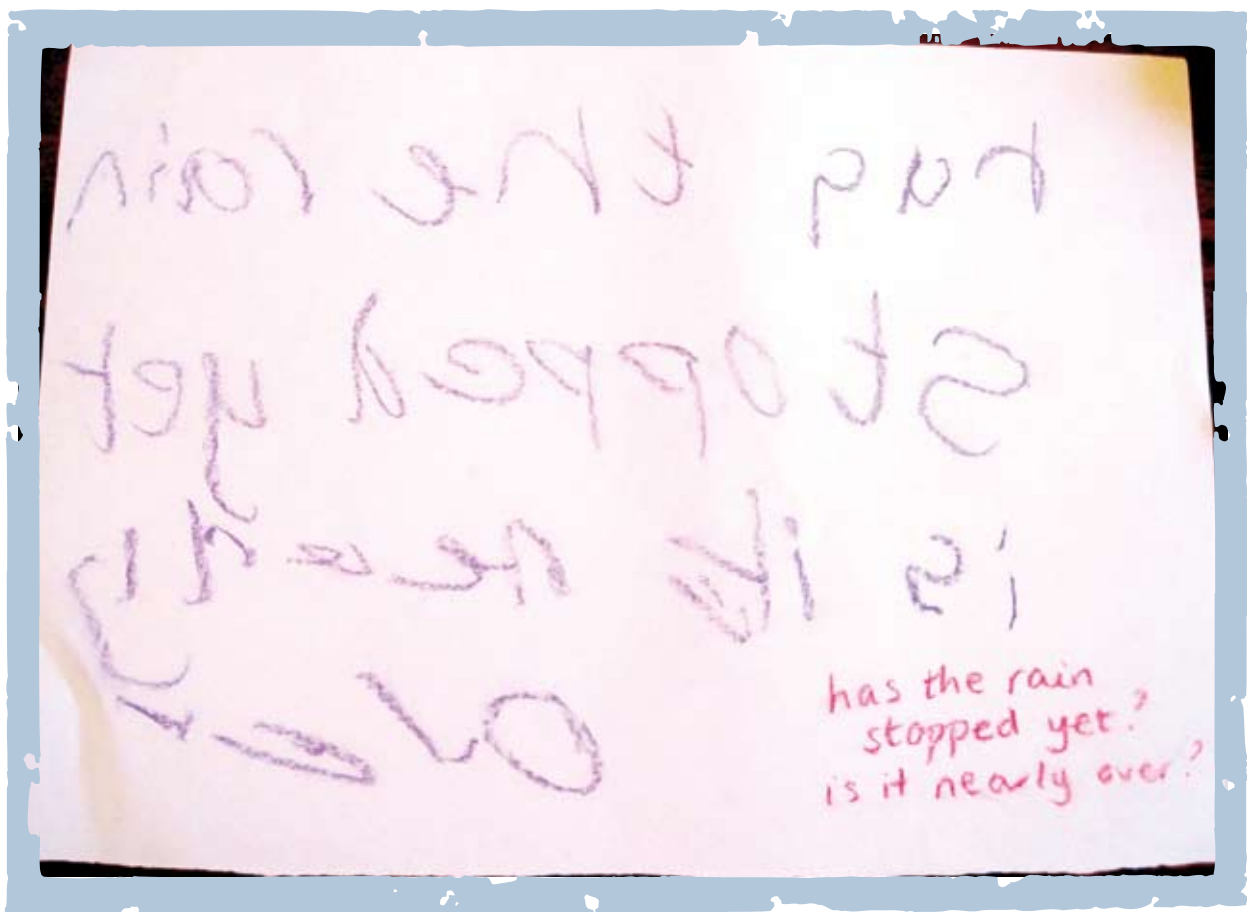 has the rain
stopped yet
is it nearly
over
has the rain
stopped yet?
is it nearly over?